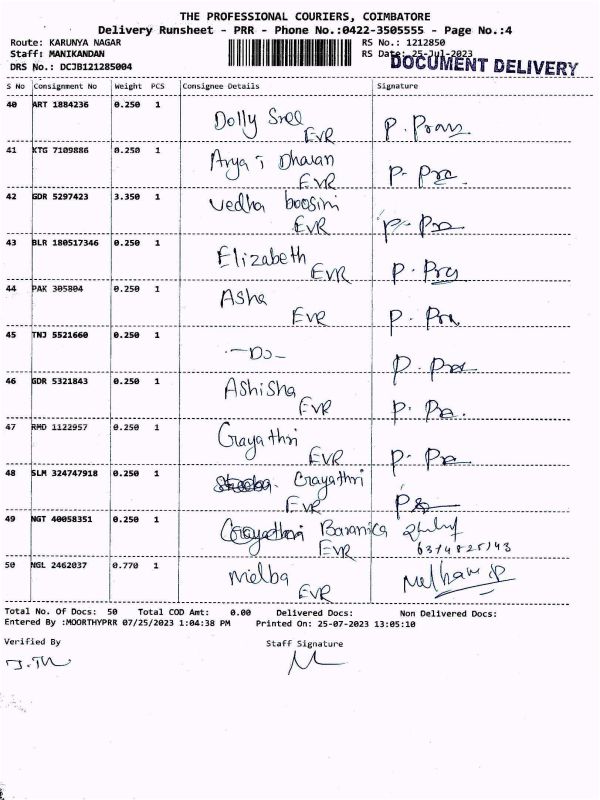 THE PROFESSIONAL COURIERS, COIMBATORE
Delivery Runsheet - PRR - Phone No.:0422-3505555 - Page No.:4
Route: KARUNYA NAGAR RS No.: 1212850
Staff: MANIKANDAN RS Date: 25-Jul-2023
DOCUMENT DELIVERY
DRS No.: DCJB121285004
S No Consignment No Weight PCS Consignee Details Signature
40 ART 1884236 0.250 1 Dolly Sree
EVR
41 KTG 7109886 0.250 1 Arya Dharan
EVR
42 GDR 5297423 3.350 1 vedha boosini
EVR
43 BLR 180517346 0.250 1 Elizabeth
EVR
44 PAK 305804 0.250 1 Asha
EVR
45 TNJ 5521660 0.250 1 -Do-
46 GDR 5321843 0.250 1 Ashisha
EVR
47 RMD 1122957 0.250 1 Gayathri
EVR
48 SLM 324747918 0.250 1 Gayathri
EVR
49 NGT 40058351 0.250 1 Gayathri Baranica
EVR 6374825143
50 NGL 2462037 0.770 1 Melba
EVR
Total No. Of Docs: 50 Total COD Amt: 0.00 Delivered Docs: Non Delivered Docs:
Entered By :MOORTHYPRR 07/25/2023 1:04:38 PM Printed On: 25-07-2023 13:05:10
Verified By Staff Signature